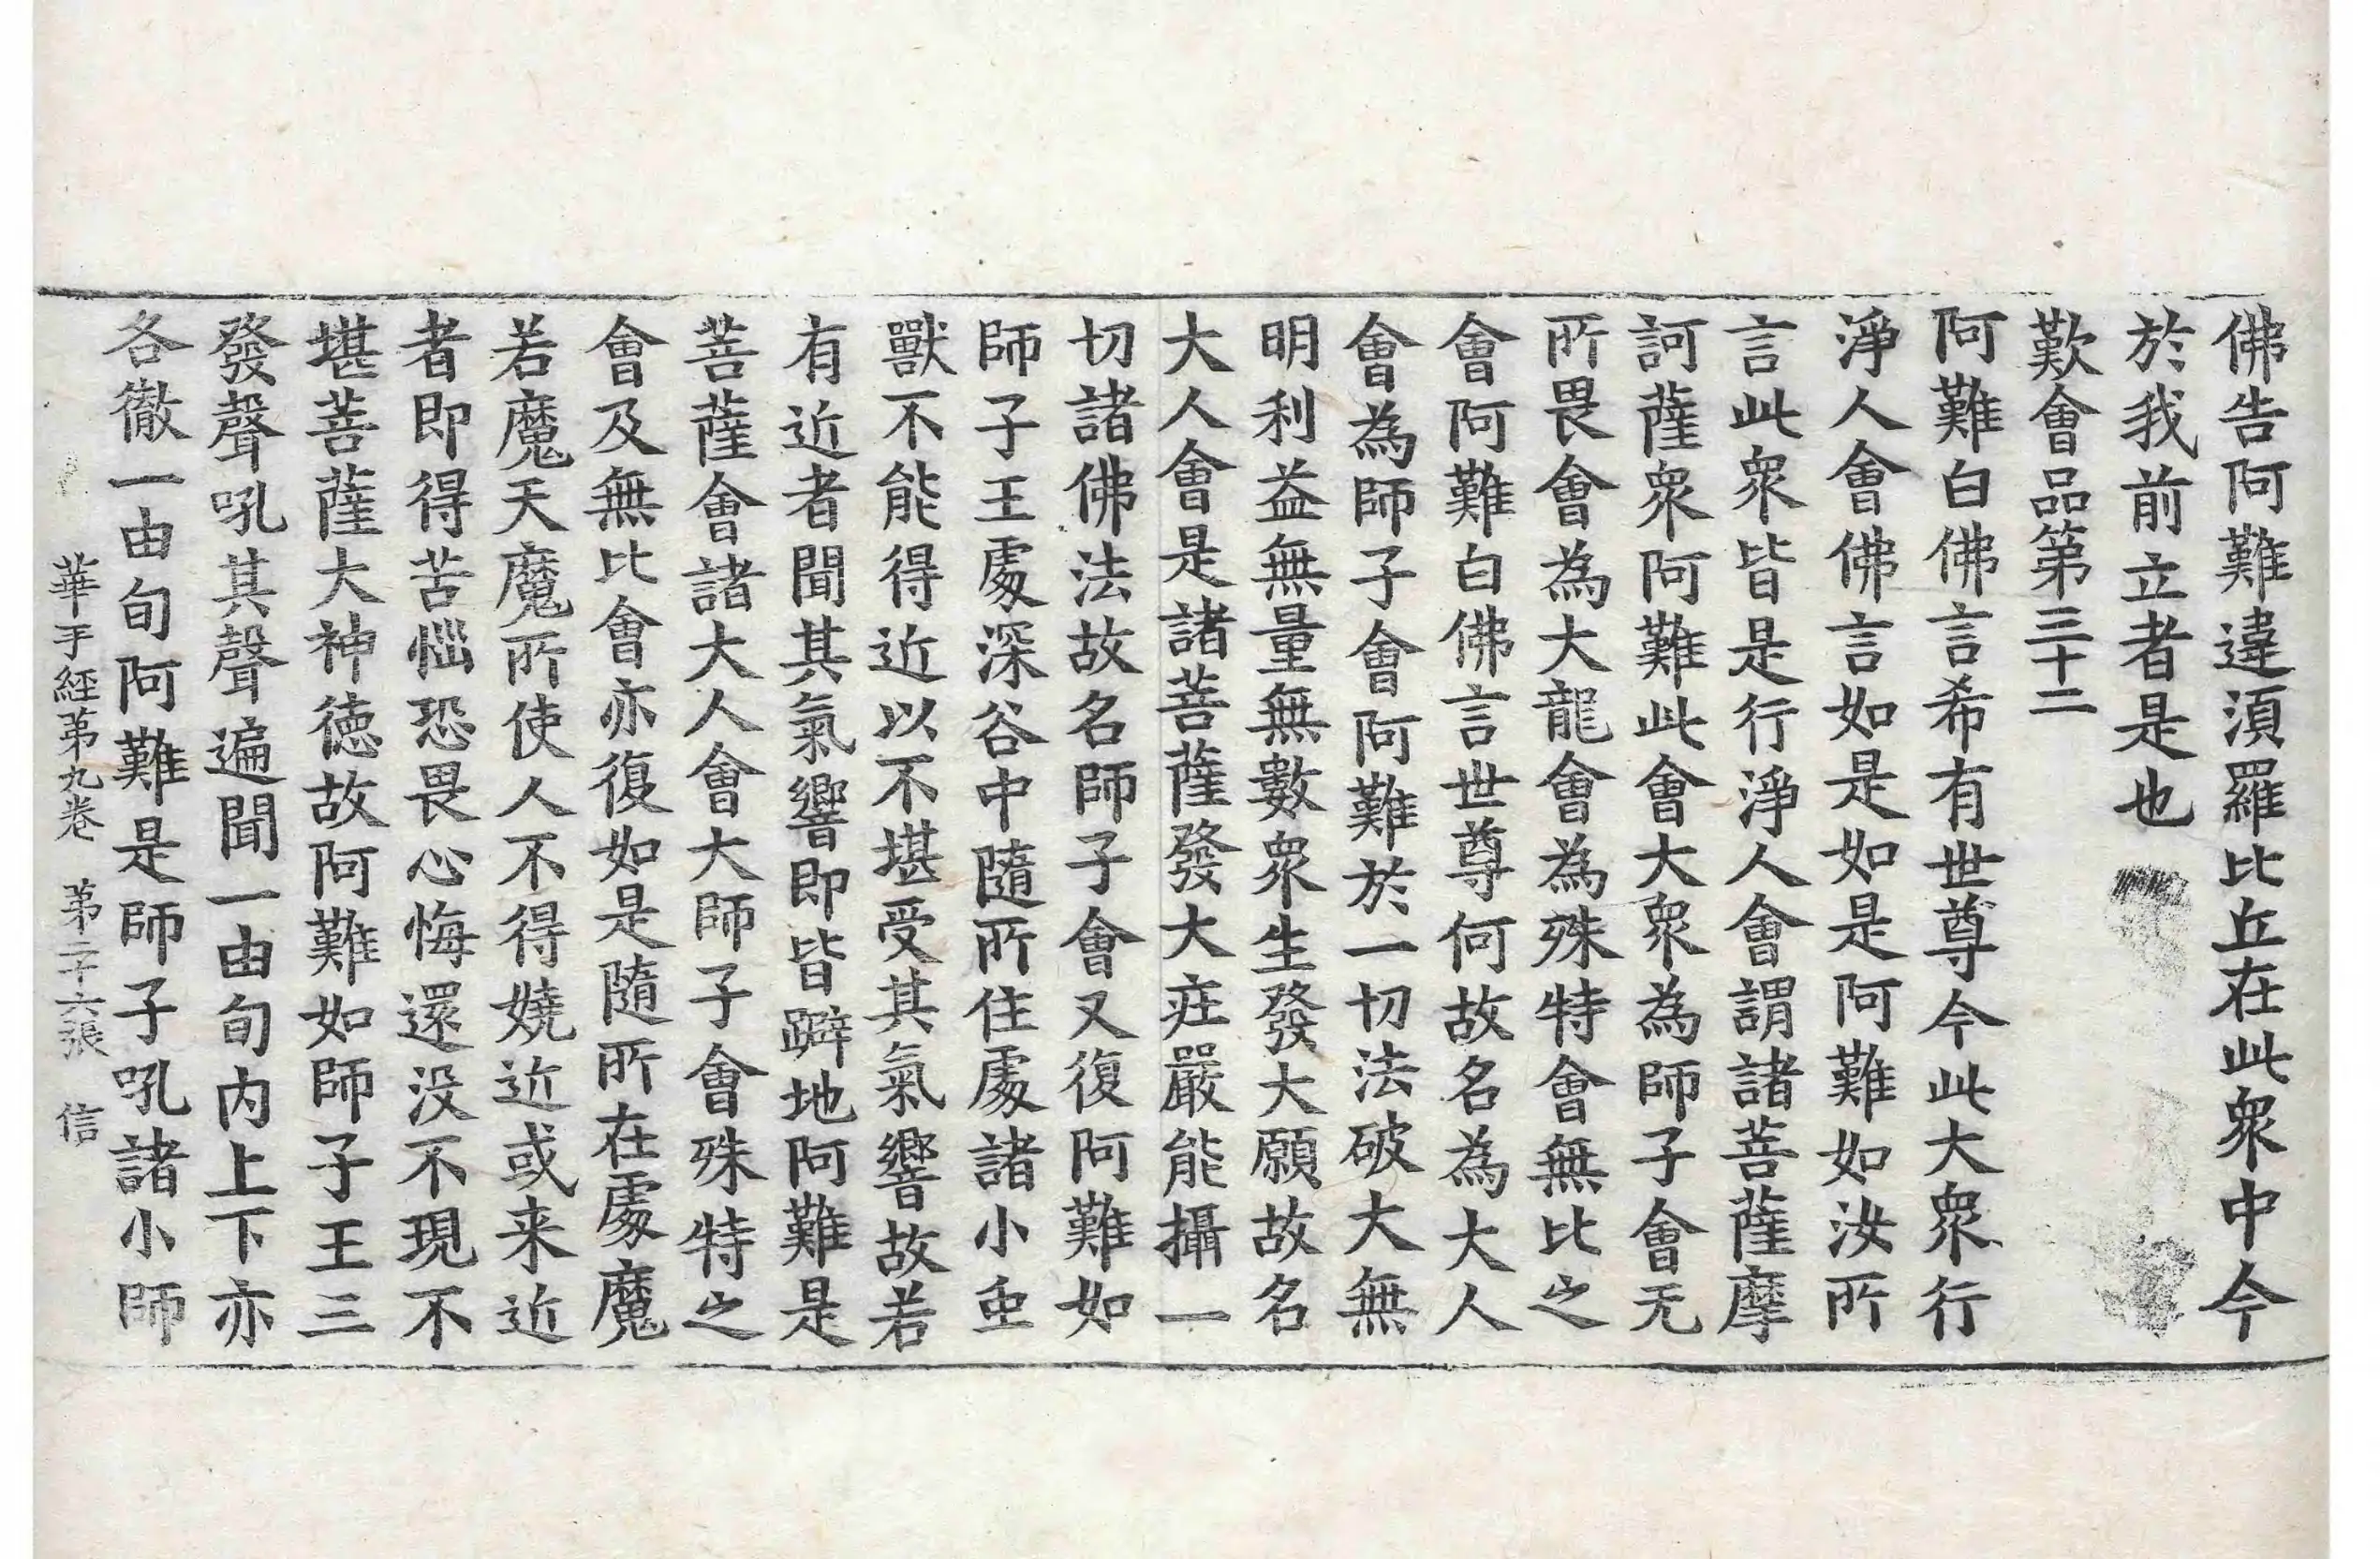 佛告阿難違湏羅比丘在此衆中今
於我前立者是也
歎會品第三十二
阿難白佛言希有世尊今此大衆行
淨人會佛言如是如是阿難如汝所
言此衆皆是行淨人會謂諸菩薩摩
訶薩衆阿難此會大衆為師子會无
所畏會為大龍會為殊特會無比之
會阿難白佛言世尊何故名為大人
會為師子會阿難於一切法破大無
明利益無量無數衆生發大願故名
大人會是諸菩薩發大疪嚴能攝一
切諸佛法故名師子會又復阿難如
師子王處深谷中隨所住處諸小䖝
獸不能得近以不堪受其氣響故若
有近者聞其氣響即皆躃地阿難是
菩薩會諸大人會大師子會殊特之
會及無比會亦復如是隨所在處魔
若魔天魔所使人不得嬈近或来近
者即得苦惱恐畏心悔還没不現不
堪菩薩大神徳故阿難如師子王三
發聲吼其聲遍聞一由旬内上下亦
各徹一由旬阿難是師子吼諸小師
華手経第九卷 第二十六張 信